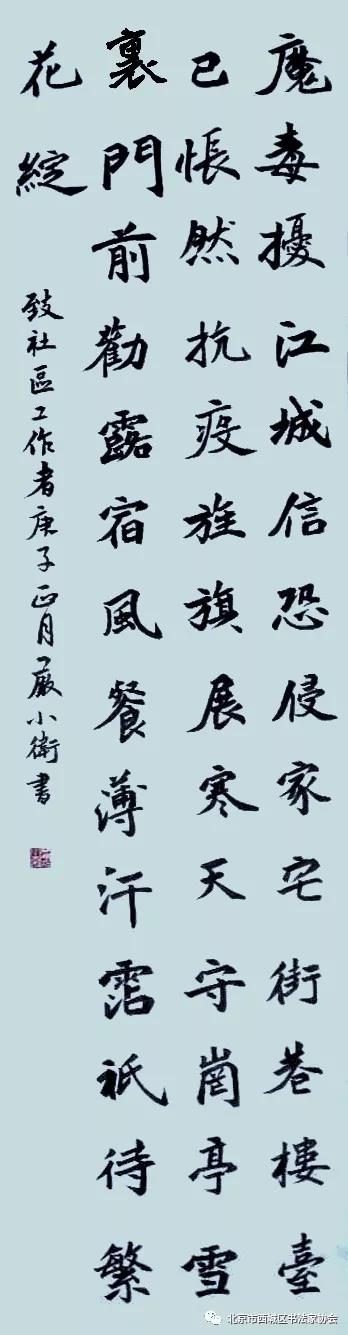 魔毒擾江城信恐侵家宅街巷樓臺
已悵然抗疫旌旗展寒天守崗亭雪
裏門前勸露宿風餐薄汗霑祇待繁
花綻
致社區工作者庚子正月嚴小衛書
北京市西城区书法家协会